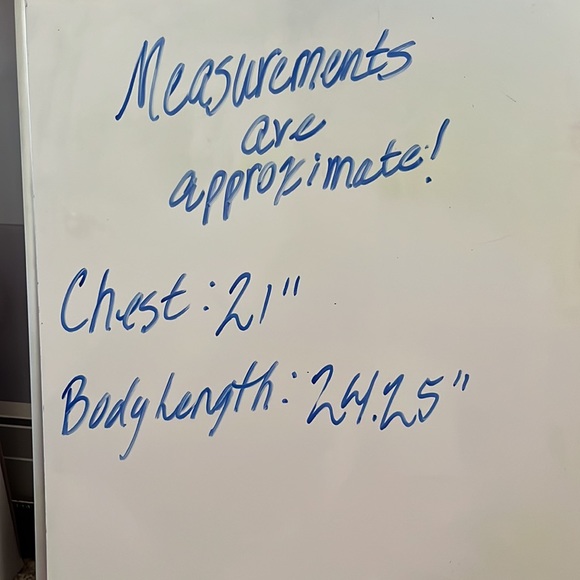 Measurements
are
approximate!
Chest: 21"
Body Length: 24.25"